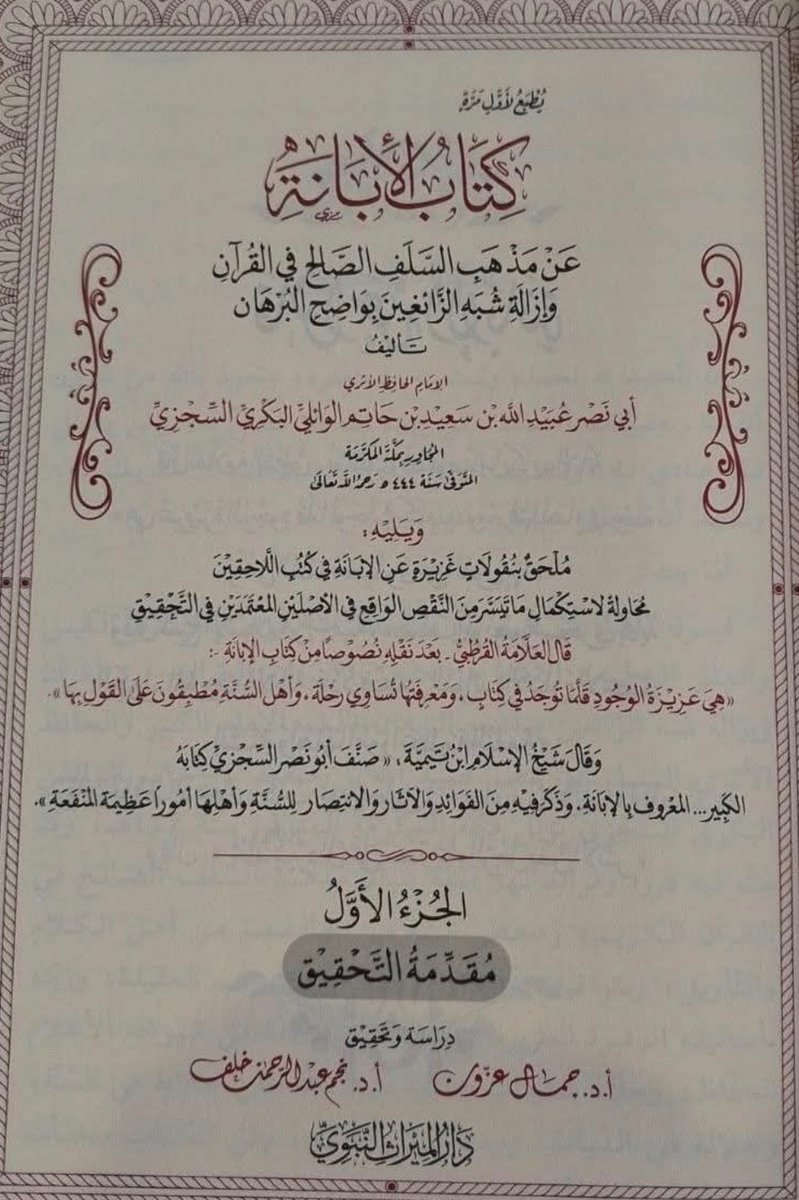 يُطْبَعُ لأَوَّلِ مَرَّةٍ
كِتَابُ الأَبَانَةِ
عَنْ مَذْهَبِ السَّلَفِ الصَّالِحِ فِي القُرْآنِ
وَإِزَالَةِ شُبَهِ الزَّائِغِينَ بِوَاضِحِ البُرْهَان
تَأليفُ
الإمَامِ الحَافِظِ الأثَرِي
أبِي نَصْر عُبَيْدِ اللَّه بْن سَعِيدِ بْن حَاتِمِ الوَائِليِّ البَكْرِيِّ السِّجْزِيِّ
المُجَاوِرِ بِمَكَّةَ المُكَرَّمَة
المُتَوَفَّى سَنَة ٤٤٤ هـ رَحِمَهُ اللَّه تَعَالَى
وَيَلِيْهِ:
مُلْحَقٌ بِنُقُولَاتٍ غَزِيْرَةٍ عَنِ الإِبَانَةِ فِي كُتُبِ اللَّاحِقِيْنَ
مُحَاوِلةً لاسْتِكْمَالِ مَا تَيَسَّرَ مِنَ النَّقْصِ الوَاقِعِ فِي الأَصْلَيْنِ المُعْتَمَدَيْنِ فِي التَّحْقِيْقِ
قَالَ العَلَّامَةُ القُرْطُبِيُّ - بَعْدَ نَقْلِهِ نُصُوصًا مِنْ كِتَابِ الإِبَانَةِ -:
«هِيَ عَزِيْزَةُ الوُجُودِ قَلَّمَا تُوجَدُ فِي كِتَابٍ، وَمَعْرِفَتُهَا تُسَاوِي رِحْلَة، وَأَهْلُ السُّنَّةِ مُطْبِقُونَ عَلَى القَوْلِ بِهَا».
وَقَالَ شَيْخُ الإسْلَامِ ابْنُ تَيْمِيَّةَ: «صَنَّفَ أَبُو نَصْر السِّجْزِيُ كِتَابَهُ
الكَبِير... المَعْرُوف بِالإِبَانَةِ، وَذَكَرَ فِيْهِ مِنَ الفَوَائِدِ وَالآثَارِ وَالانْتِصَار لِلسُّنَّةِ وَأَهْلِهَا أُمُورًا عَظِيمَةَ المَنْفَعَة».
الجُزْءُ الأَوَّلُ
مُقَدِّمَةُ التَّحْقِيْقِ
دِرَاسَة وَتَحْقِيْق
أ.د. جمال عزّون أ.د. نجم عبد الرحمن خلف
دَارُ المِيرَاثِ النَّبَوِيِّ